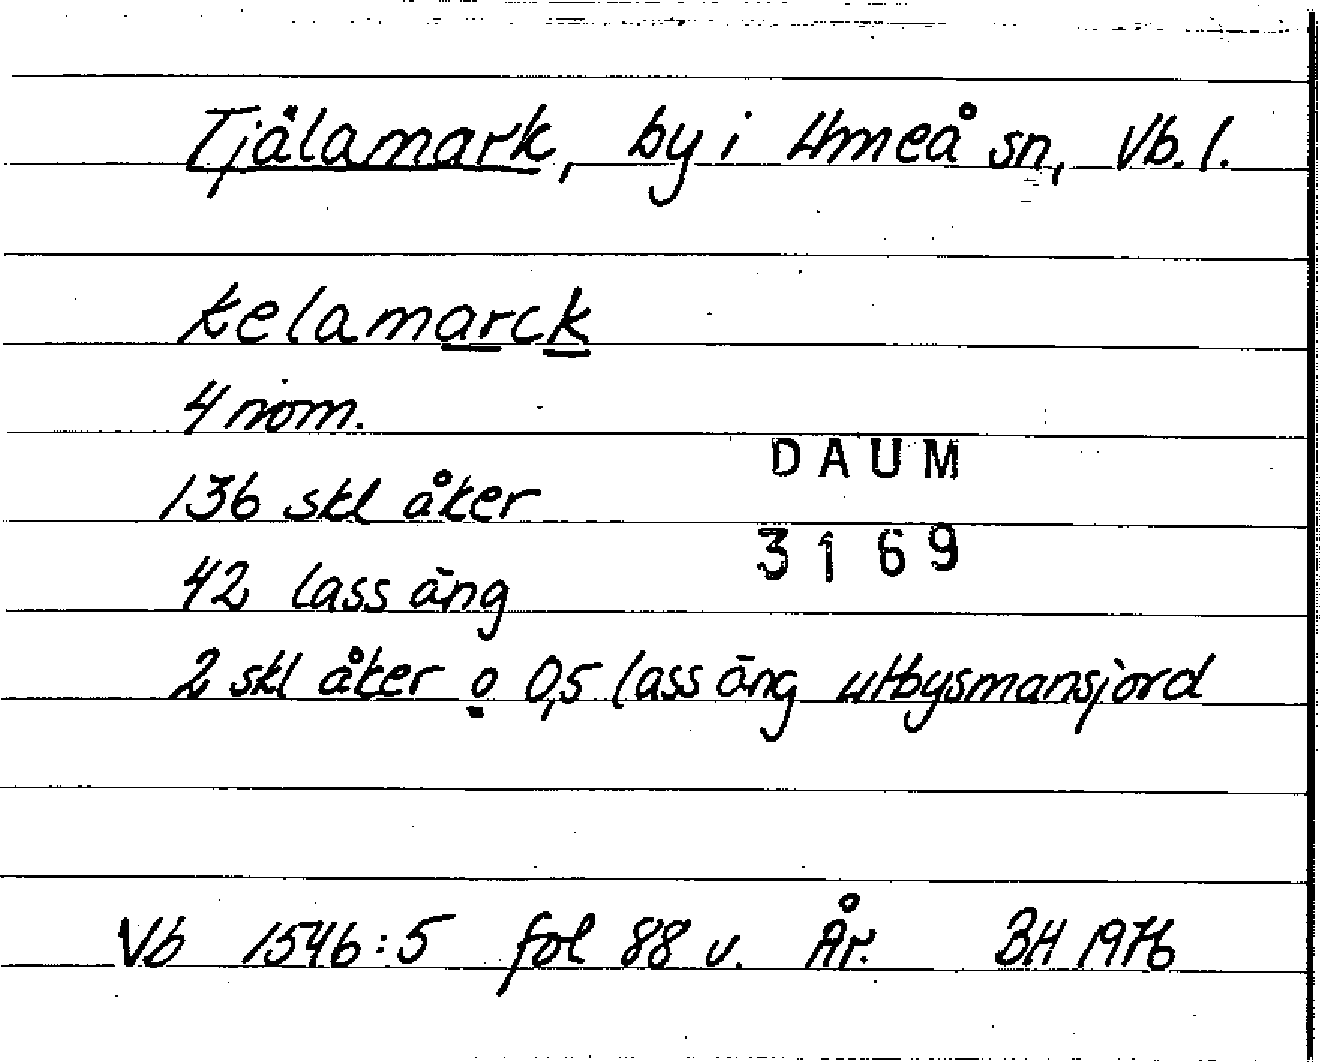 Tjälamark, by i Umeå sn, Vb. l.
kelamarck
4 nom.
136 skl åker
DAUM
3169
42 lass äng
2 skl åker o 0,5 lass äng utbysmansjord
Vb 1546:5 fol 88 v. År. BH 1976